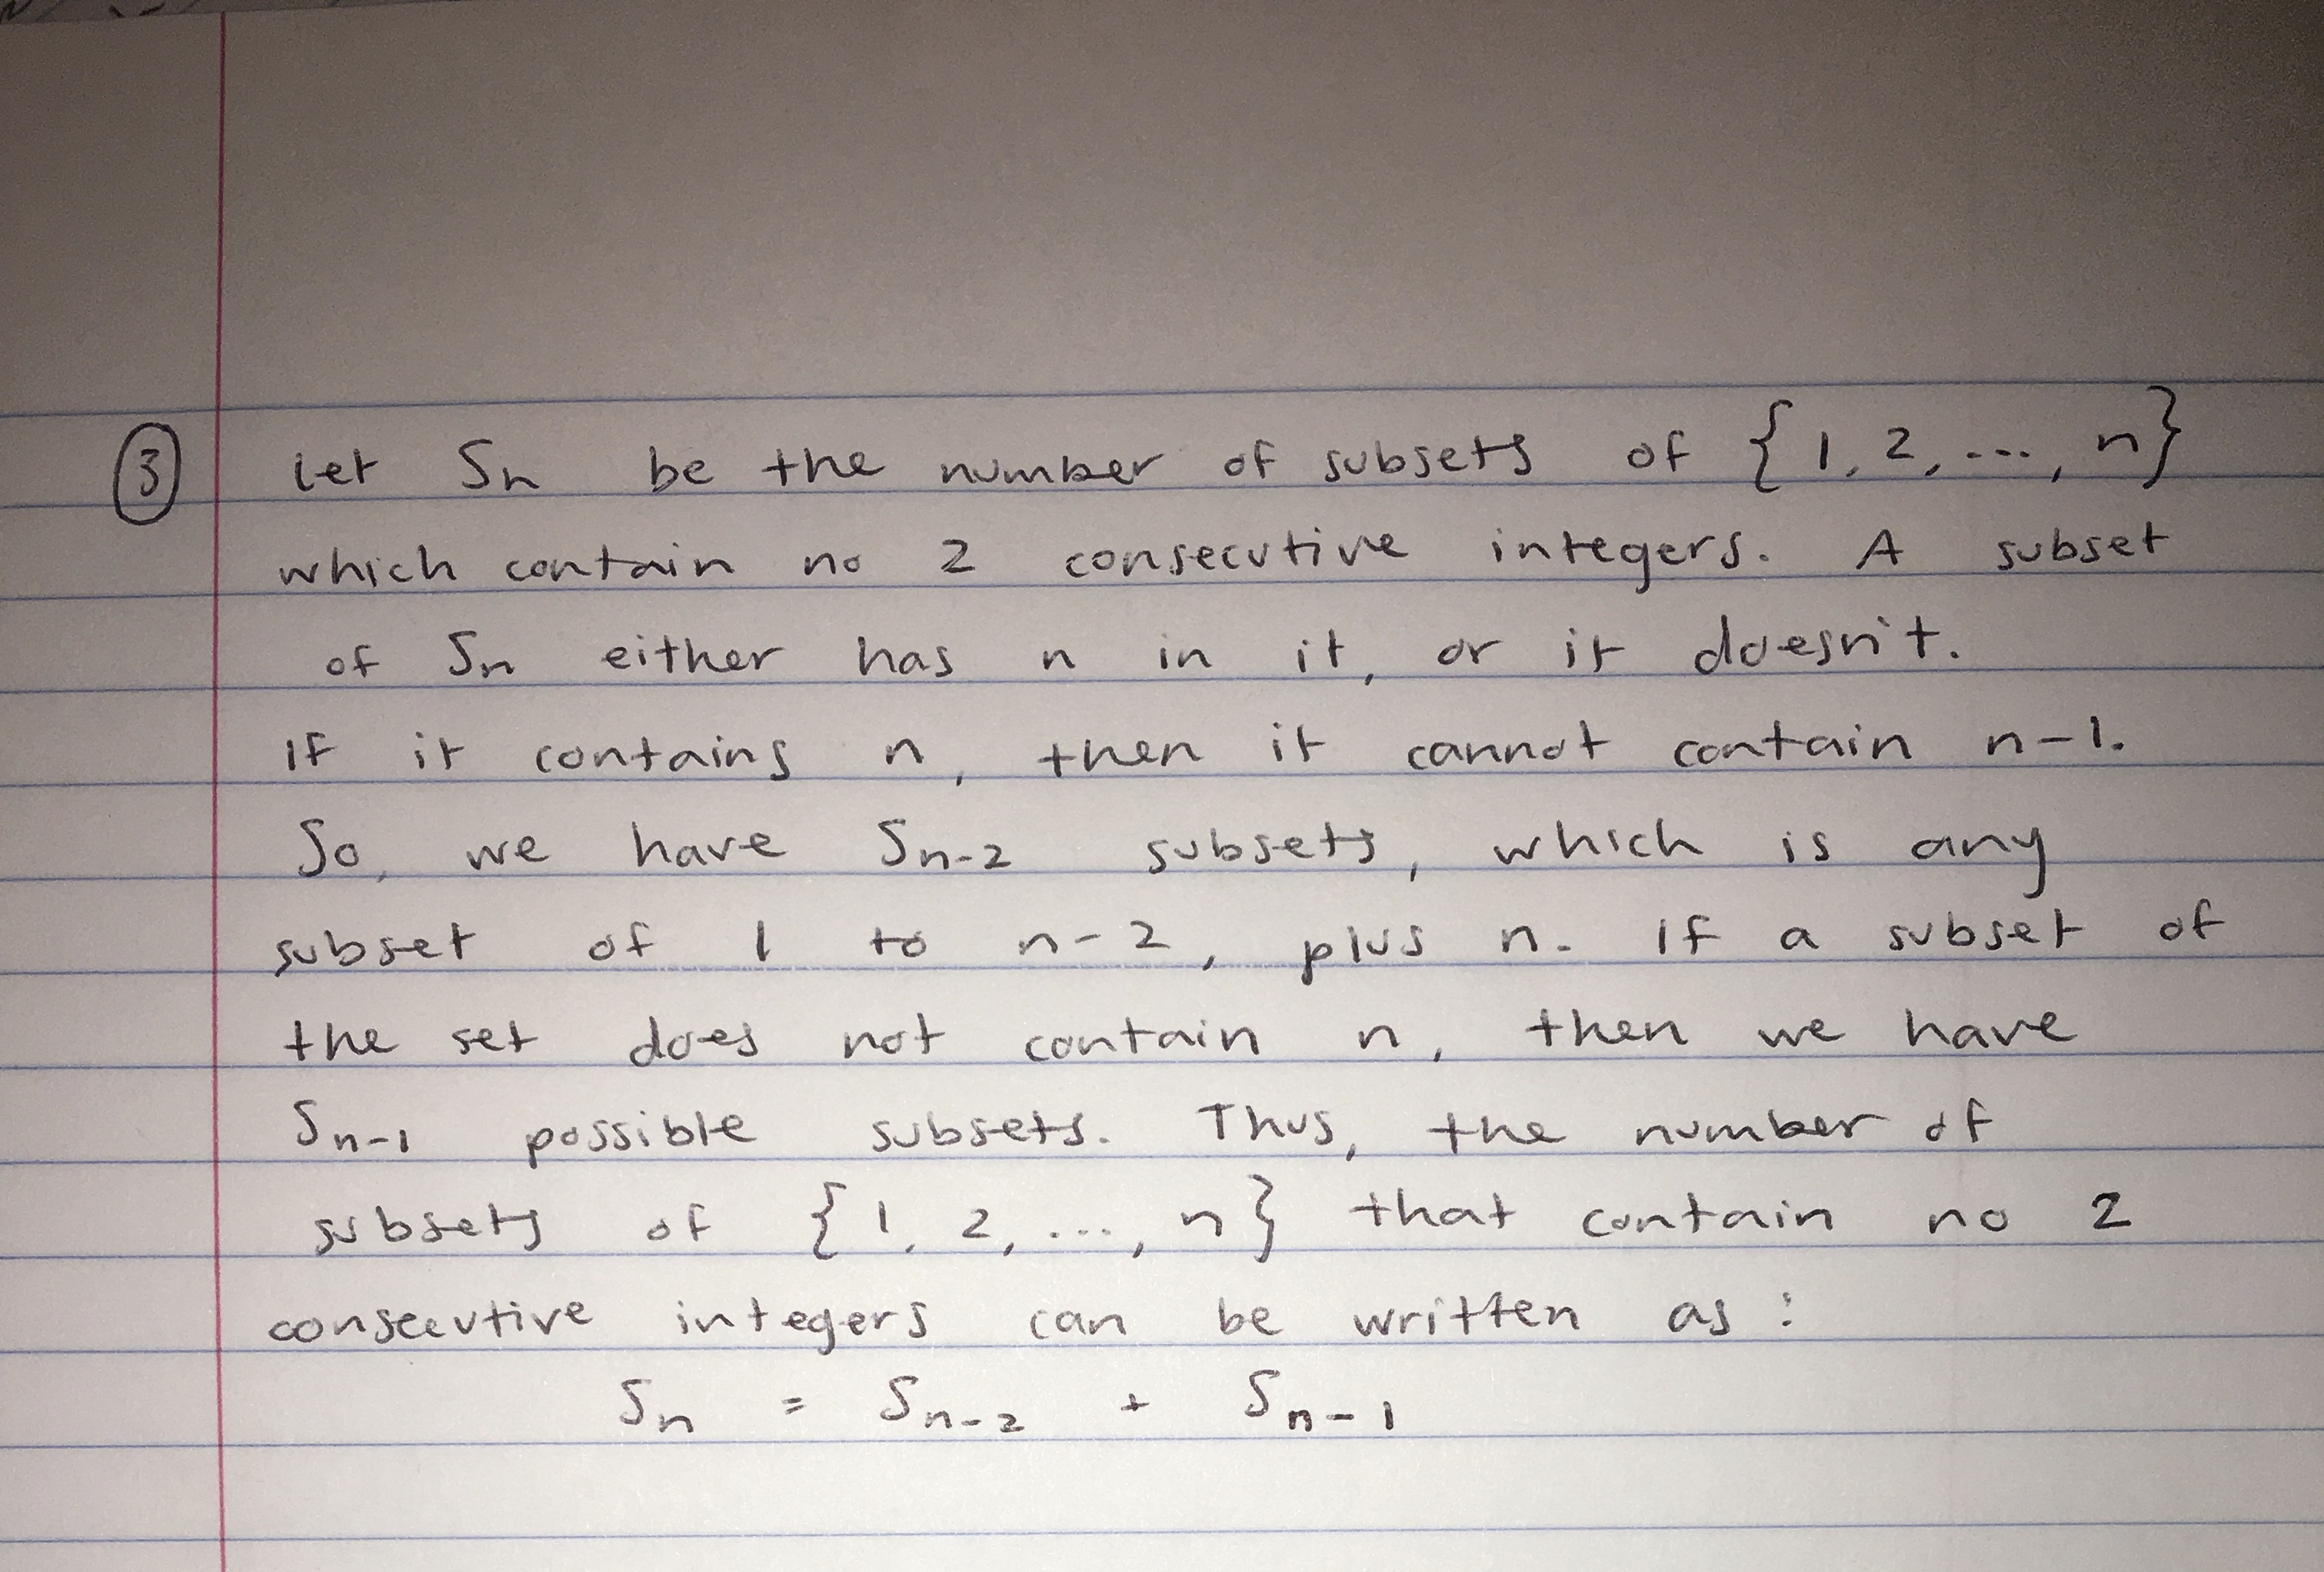 ③ Let Sn be the number of subsets of {1, 2, ..., n}
which contain no 2 consecutive integers. A subset
of Sn either has n in it, or it doesn't.
If it contains n, then it cannot contain n-1.
So, we have Sn-2 subsets, which is any
subset of 1 to n-2, plus n. If a subset of
the set does not contain n, then we have
Sn-1 possible subsets. Thus, the number of
subsets of {1, 2, ..., n} that contain no 2
consecutive integers can be written as:
Sn = Sn-2 + Sn-1